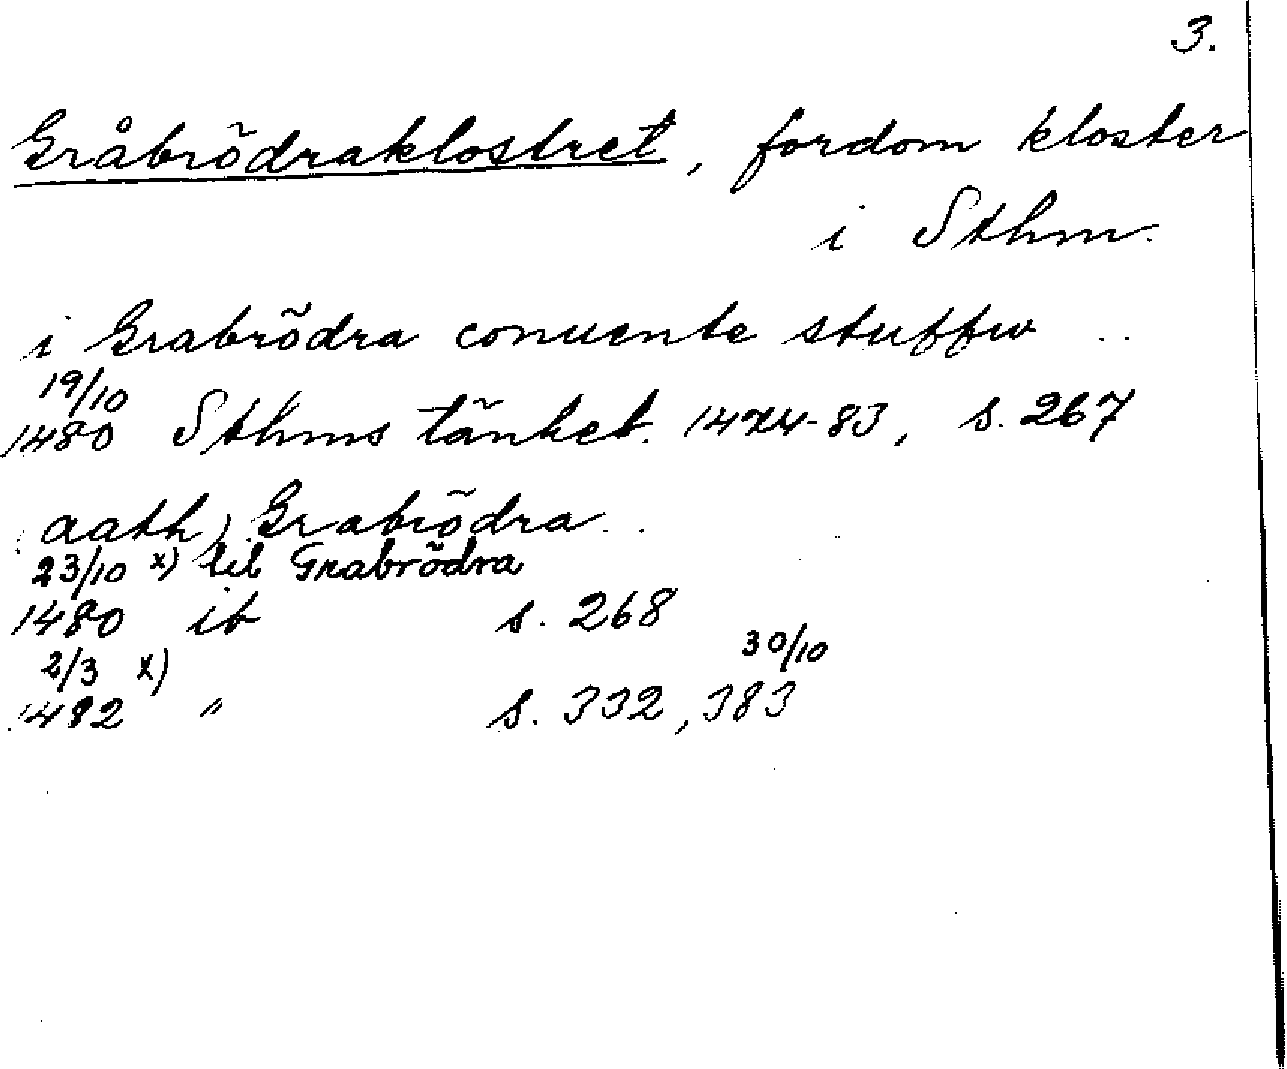 3.
Gråbrödraklostret, fordom kloster
i Sthm.
i Grabrödra conuente stuffw ..
19/10
1480 Sthms tänkeb. 1474-83, s. 267
aath Grabrödra..
23/10 x) tel Grabrödra
1480 ib s. 268
2/3 x) 30/10
1482 " s. 332, 383